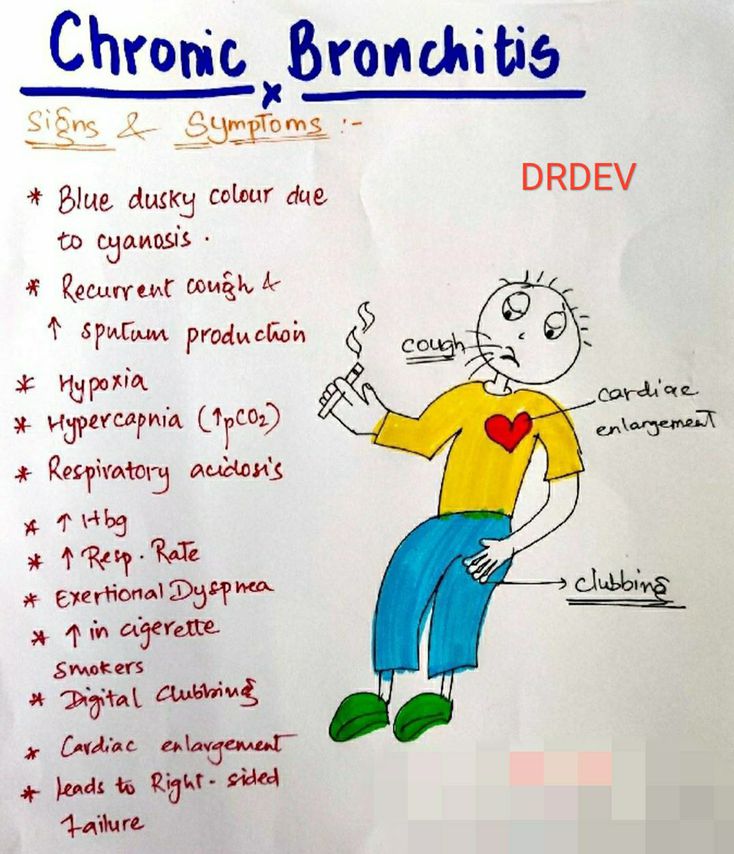 Chronic Bronchitis
x
Signs & Symptoms :-
DRDEV
* Blue dusky colour due
to cyanosis .
* Recurrent cough &
↑ sputum production
* Hypoxia
* Hypercapnia (↑pCO2)
* Respiratory acidosis
* ↑ Hbg
* ↑ Resp. Rate
* Exertional Dyspnea
* ↑ in cigerette
smokers
* Digital Clubbing
* Cardiac enlargement
* leads to Right-sided
Failure
cough
cardiac
enlargement
clubbing